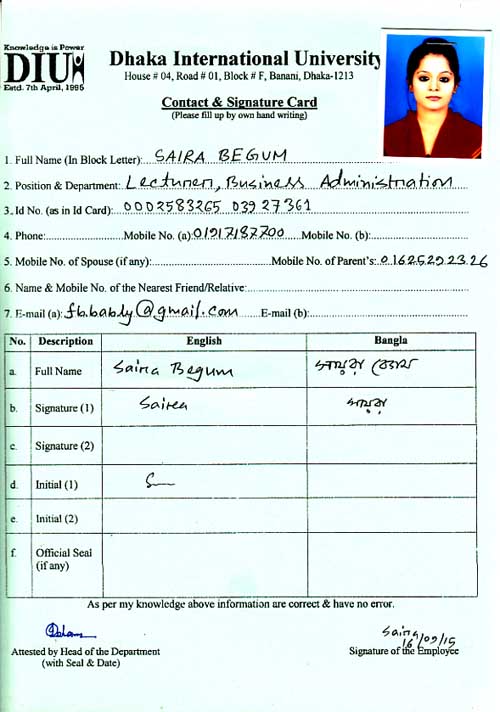 Knowledge is Power
DIU
Estd. 7th April, 1995
Dhaka International University
House # 04, Road # 01, Block # F, Banani, Dhaka-1213
Contact & Signature Card
(Please fill up by own hand writing)
1. Full Name (In Block Letter): SAIRA BEGUM
2. Position & Department: Lecturer, Business Administration
3. Id No. (as in Id Card): 0002583265 03927361
4. Phone: Mobile No. (a): 01917187700 Mobile No. (b):
5. Mobile No. of Spouse (if any): Mobile No. of Parent's: 01625292326
6. Name & Mobile No. of the Nearest Friend/Relative:
7. E-mail (a): fb.bably@gmail.com E-mail (b):
No. Description English Bangla
a. Full Name Saira Begum সায়রা বেগম
b. Signature (1) Saira সায়রা
c. Signature (2)
d. Initial (1) S
e. Initial (2)
f. Official Seal
(if any)
As per my knowledge above information are correct & have no error.
Saira
16/09/15
Attested by Head of the Department Signature of the Employee
(with Seal & Date)